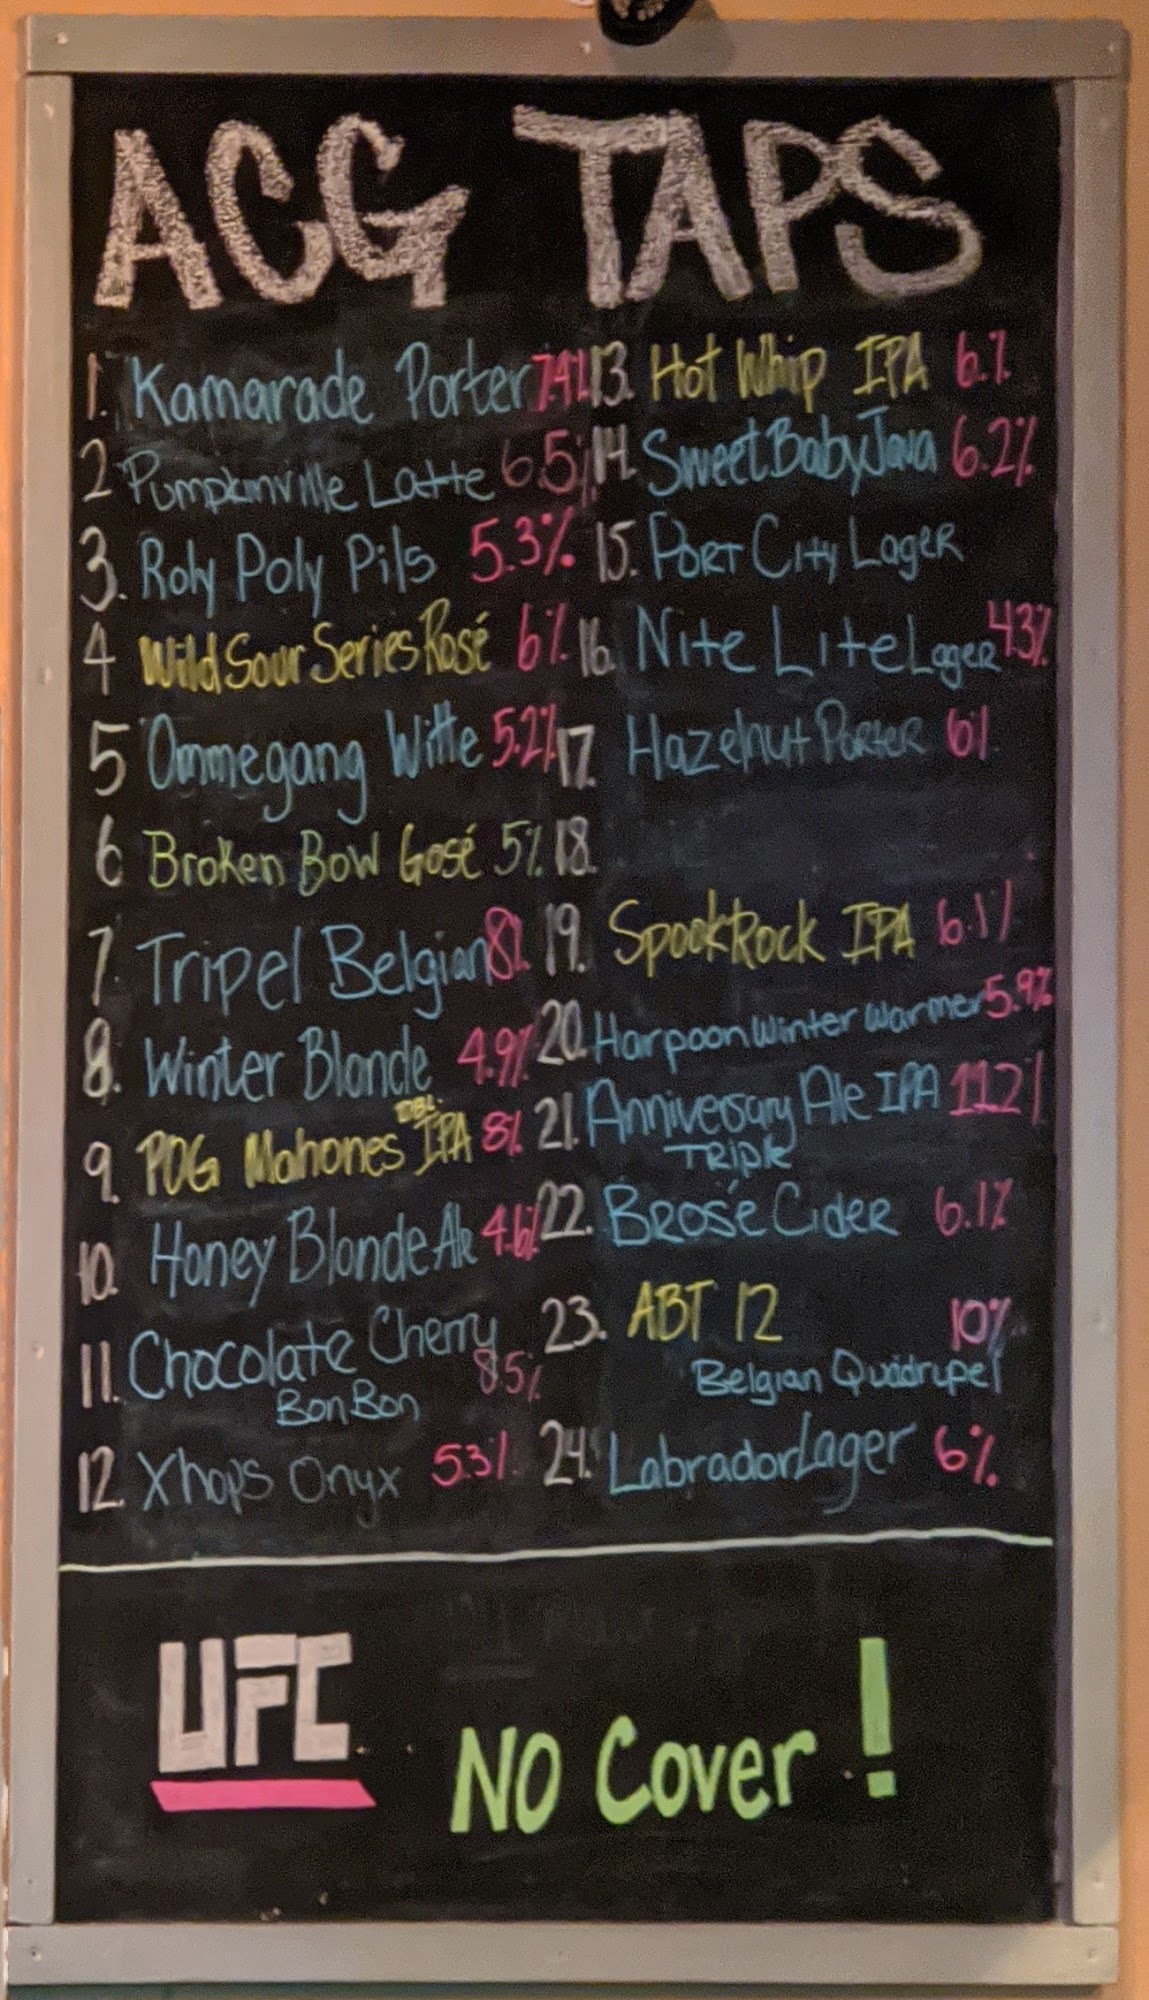 ACG TAPS
1. Kamarade Porter 7.4%
2 Pumpkinville Latte 6.5%
3. Roly Poly Pils 5.3%
4 Wild Sour Series Rosé 6%
5 Ommegang Witte 5.2%
6 Broken Bow Gosé 5%
7. Tripel Belgian 8%
8. Winter Blonde 4.9%
9. POG Mahones DBL. IPA 8%
10. Honey Blonde Ale 4.6%
11. Chocolate Cherry
BonBon 8.5%
12. Xhops Onyx 5.3%
13. Hot Whip IPA 6.%
14. Sweet Baby Java 6.2%
15. Port City Lager
16. Nite Lite Lager 4.3%
17. Hazelnut Porter 6%
18.
19. SpookRock IPA 6.1%
20. Harpoon Winter Warmer 5.9%
21. Anniversary Ale IPA 11.2%
Triple
22. Brosé Cider 6.1%
23. ABT 12 10%
Belgian Quadrupel
24. Labrador Lager 6%
UFC
NO Cover!